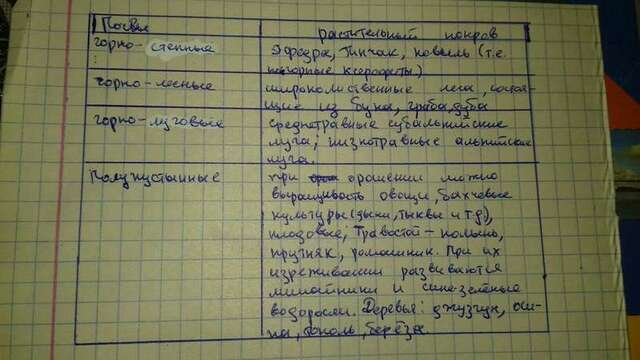 Почвы растительный покров
горно-степные Эфедра, Типчак, ковыль (т.е.
нагорные ксерофиты.)
горно-лесные широколиственные леса, состоя-
щие из бука, граба, дуба
горно-луговые среднетравные субальпийские
луга, низкотравные альпийские
луга.
Полупустынные При орошении можно
выращивать овощи, бахчевые
культуры (дыни, тыквы и т.д),
плодовые; Травостой - полынь,
прутняк, ромашник. При их
изреживании развиваются
лишайники и сине-зелёные
водоросли. Деревья: джузгун, оси-
на, тополь, берёза.